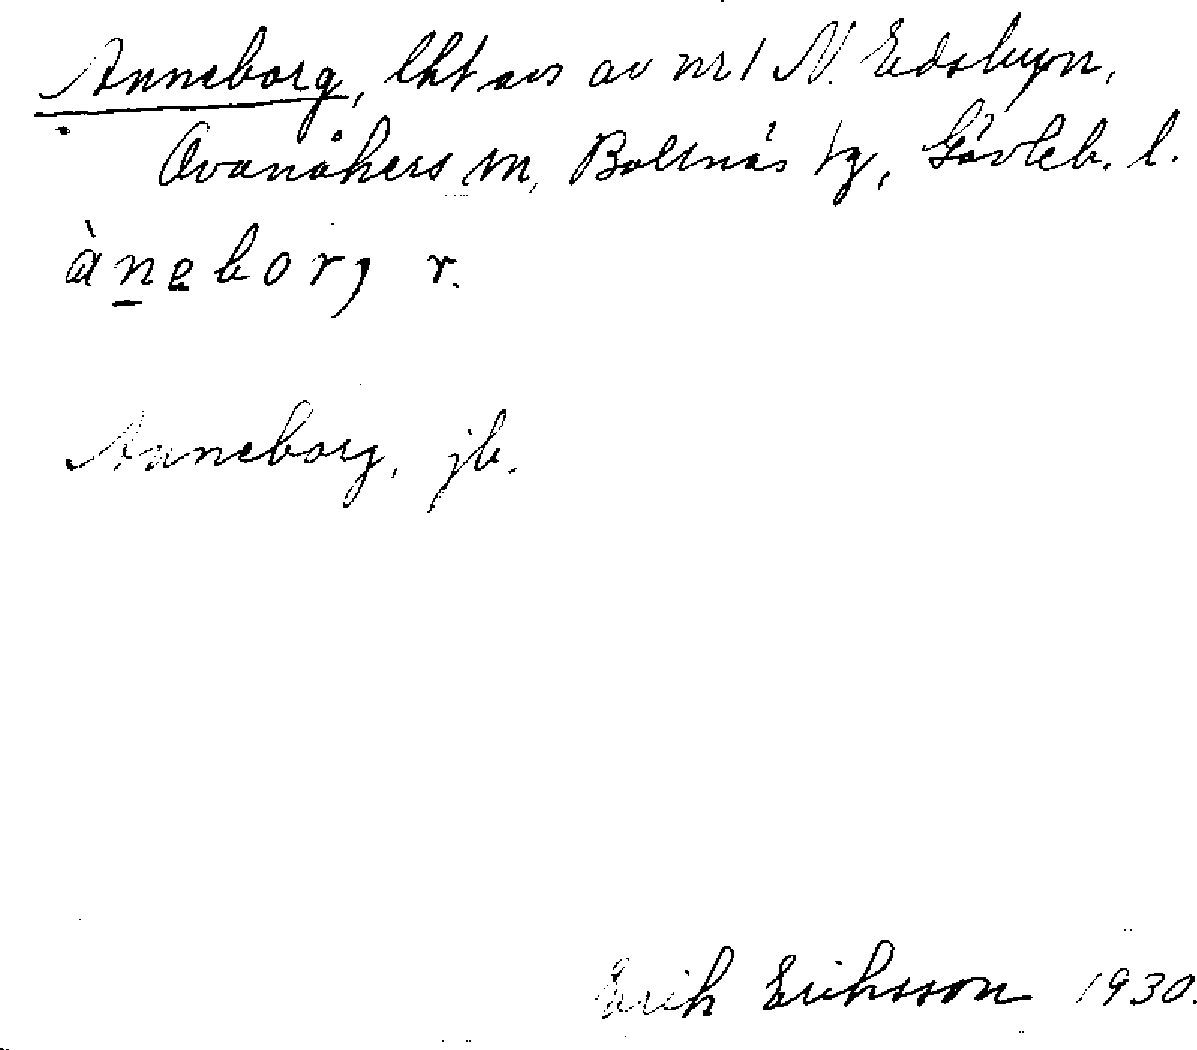 Anneborg, lht avs av nr 1 N. Edsbyn,
Ovanåkers sn, Bollnäs tg, Gävleb. l.
àneborg r.
Anneborg, jb.
Erik Eriksson 1930.